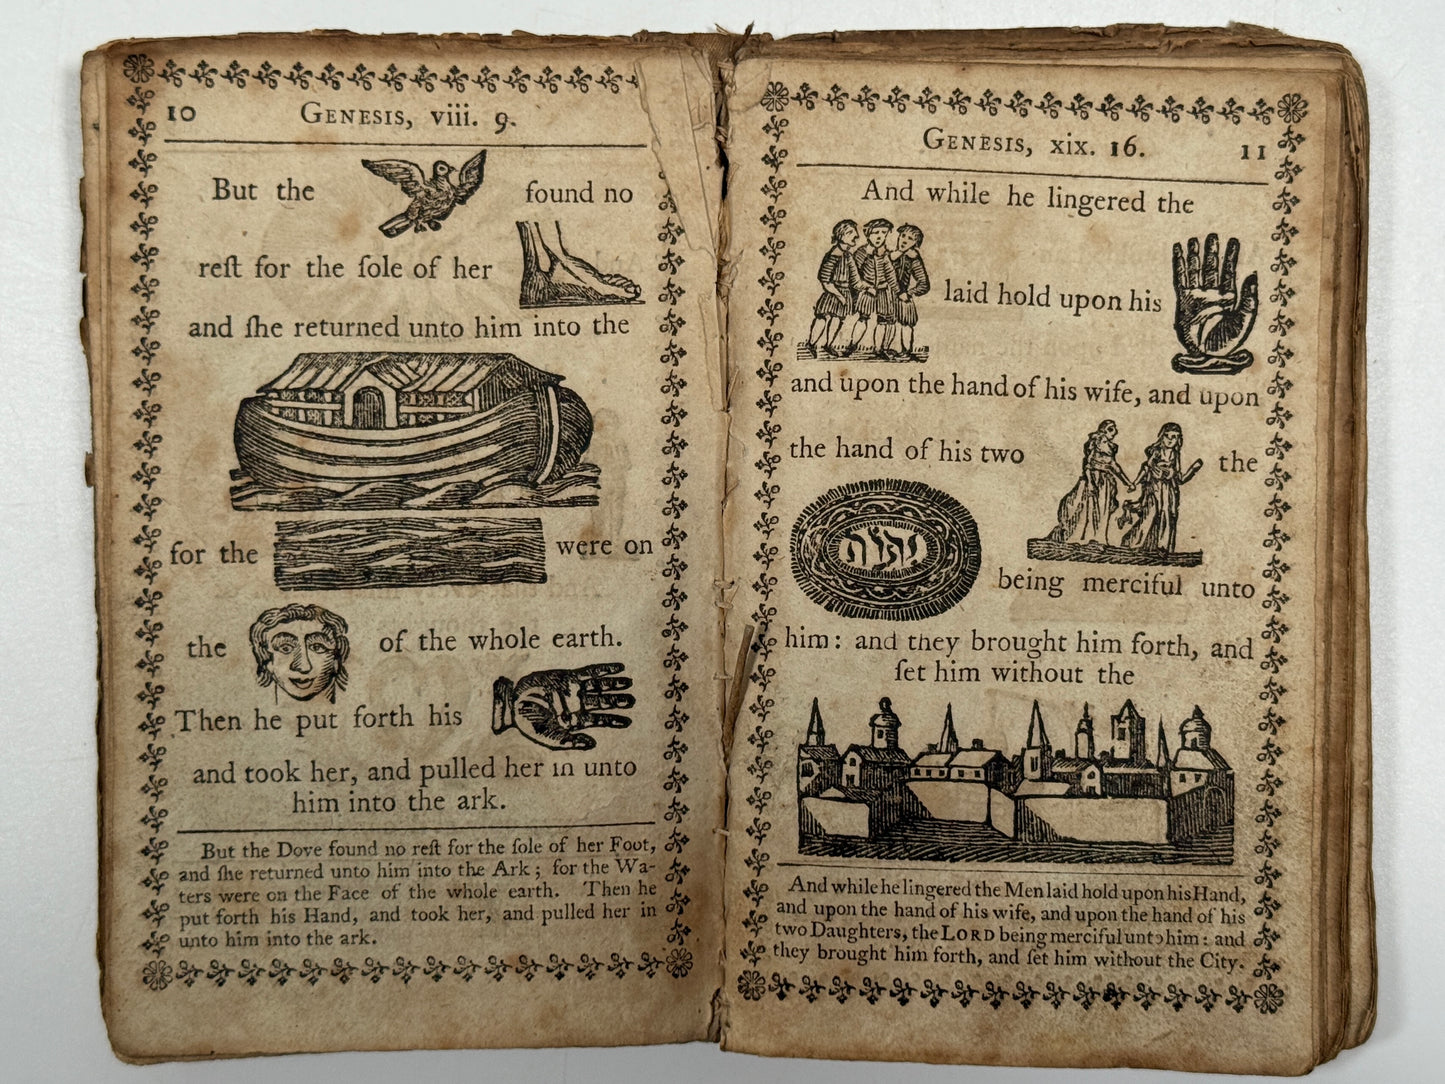 10 GENESIS, viii. 9.
But the found no
reſt for the ſole of her
and ſhe returned unto him into the
for the were on
the of the whole earth.
Then he put forth his
and took her, and pulled her in unto
him into the ark.
But the Dove found no reſt for the ſole of her Foot,
and ſhe returned unto him into the Ark; for the Wa-
ters were on the Face of the whole earth. Then he
put forth his Hand, and took her, and pulled her in
unto him into the ark.
GENESIS, xix. 16. 11
And while he lingered the
laid hold upon his
and upon the hand of his wife, and upon
the hand of his two the
יהוה
being merciful unto
him: and they brought him forth, and
ſet him without the
And while he lingered the Men laid hold upon his Hand,
and upon the hand of his wife, and upon the hand of his
two Daughters, the LORD being merciful unto him: and
they brought him forth, and ſet him without the City.